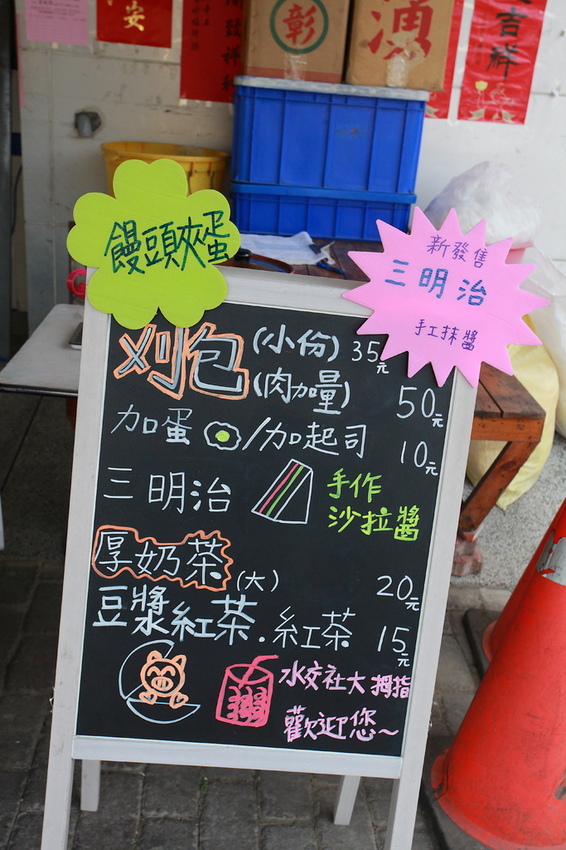 安
發祥
吉祥
彰
漁
饅頭夾蛋
新發售
三明治
手工抹醬
刈包(小份) 35元
(肉加量) 50元
加蛋/加起司 10元
三明治 手作
沙拉醬
厚奶茶(大) 20元
豆漿紅茶.紅茶 15元
水交社大拇指
歡迎您~